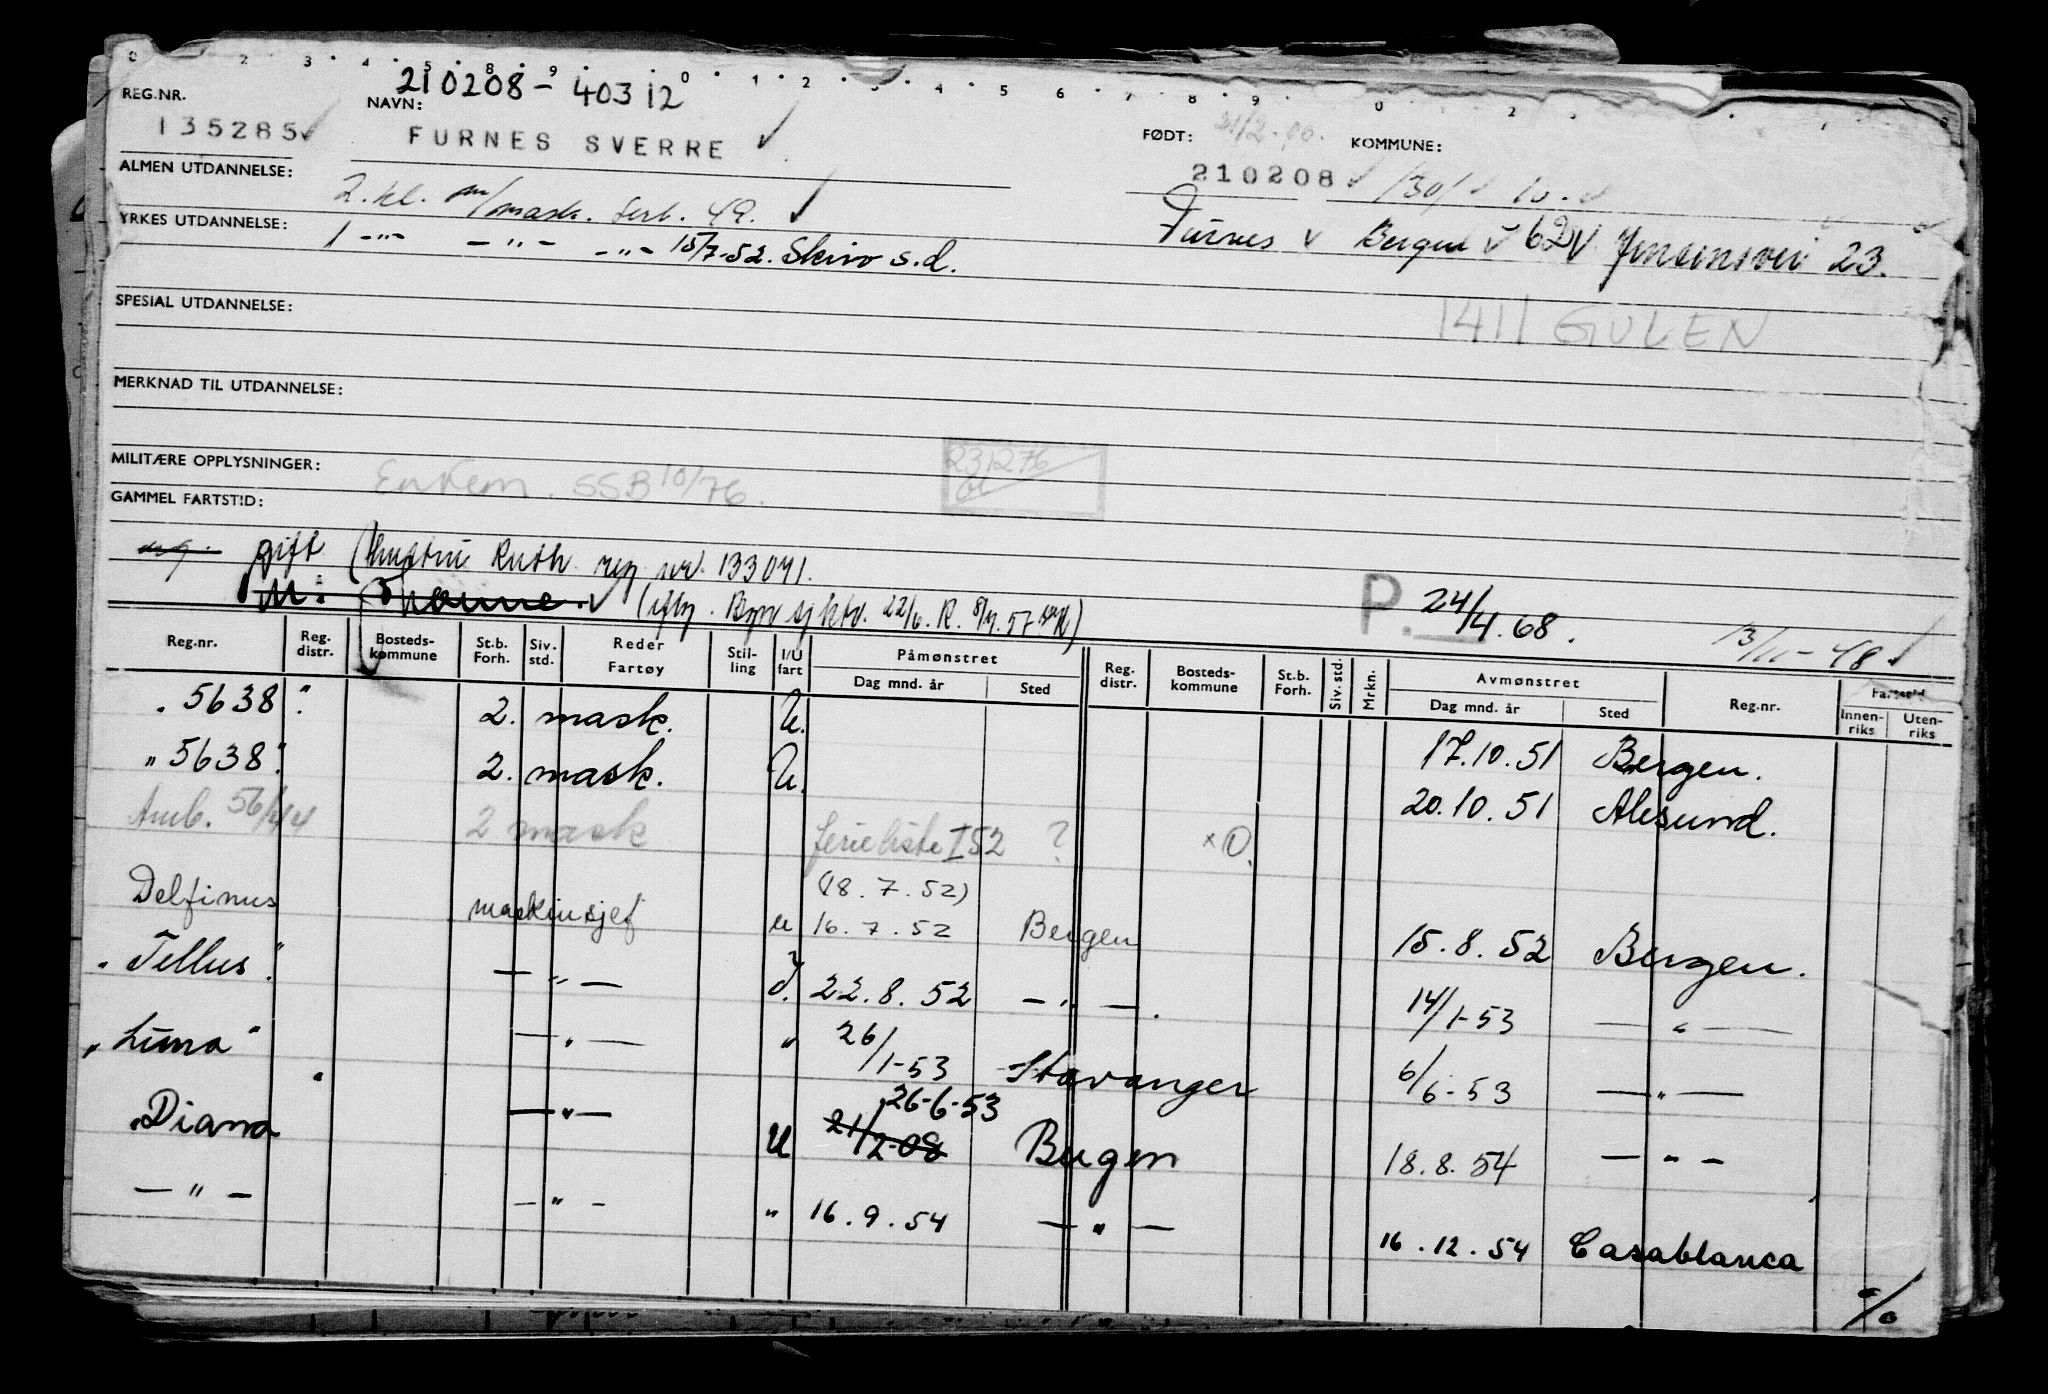 0 2 3 4 5 8 9 0 1 2 3 4 5 6 7 8 9 0
REG.NR. NAVN: 210208-40312
135285 FURNES SVERRE FØDT: KOMMUNE:
ALMEN UTDANNELSE: 210208 1301
2. kl. m/mask. sert. 49.
YRKES UTDANNELSE: 1 -"- -"- -"- 15/7-52. Skivo s.d. Furnes v Bergen v 62 V Jensensvei 23.
SPESIAL UTDANNELSE: 1411 GULEN
MERKNAD TIL UTDANNELSE:
MILITÆRE OPPLYSNINGER: SSB 10/76. 231276
GAMMEL FARTSTID:
ug. gift (hustru Ruth reg nr. 133041.
M: (iflg. 22/6. R. 57 P. 24/4.68. 13/11-48
Reg.nr. Reg. distr. Bosteds-kommune St.b. Forh. Siv. std. Reder Fartøy Stil-ling I/U fart Påmønstret Dag mnd. år Sted Reg. distr. Bosteds-kommune St.b. Forh. Siv. std. Mrkn. Avmønstret Dag mnd. år Sted Reg.nr. Fartstid Innen-riks Uten-riks
" 5638 " 2. mask. U. 17.10.51 Bergen.
" 5638 " 2. mask. U. 20.10.51 Ålesund.
Amb. 56/44 2 mask ferieliste I 52 ? x O.
(18.7.52)
Delfinus maskinsjef u 16.7.52 Bergen 15.8.52 Bergen.
" Tellus " — " — I. 22.8.52 — " —. 14/1-53 — " —
" Luna " — " — " 26/1-53 Stavanger 6/6-53 — " —
26-6-53
" Diana " — " — U 21/2-08 Bergen 18.8.54 — " —
— " — — " — " 16.9.54 — " — 16.12.54 Casablanca